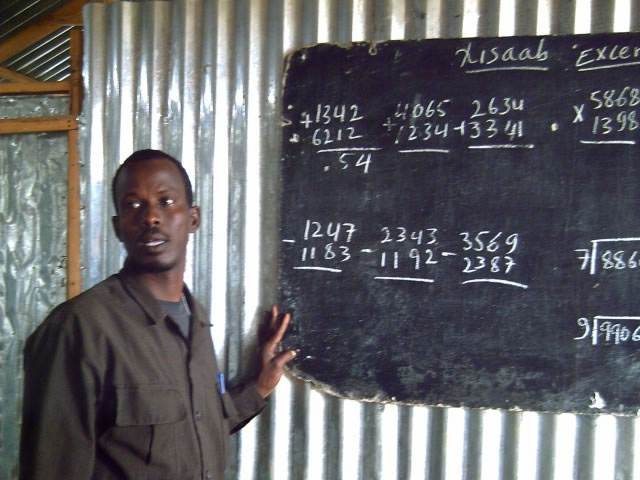 Xisaab Excer
+1342 +4065 +2634 x 5868
6212 1234 3341 1398
.54
-1247 -2343 -3569
1183 1192 2387 7 886
9 9906